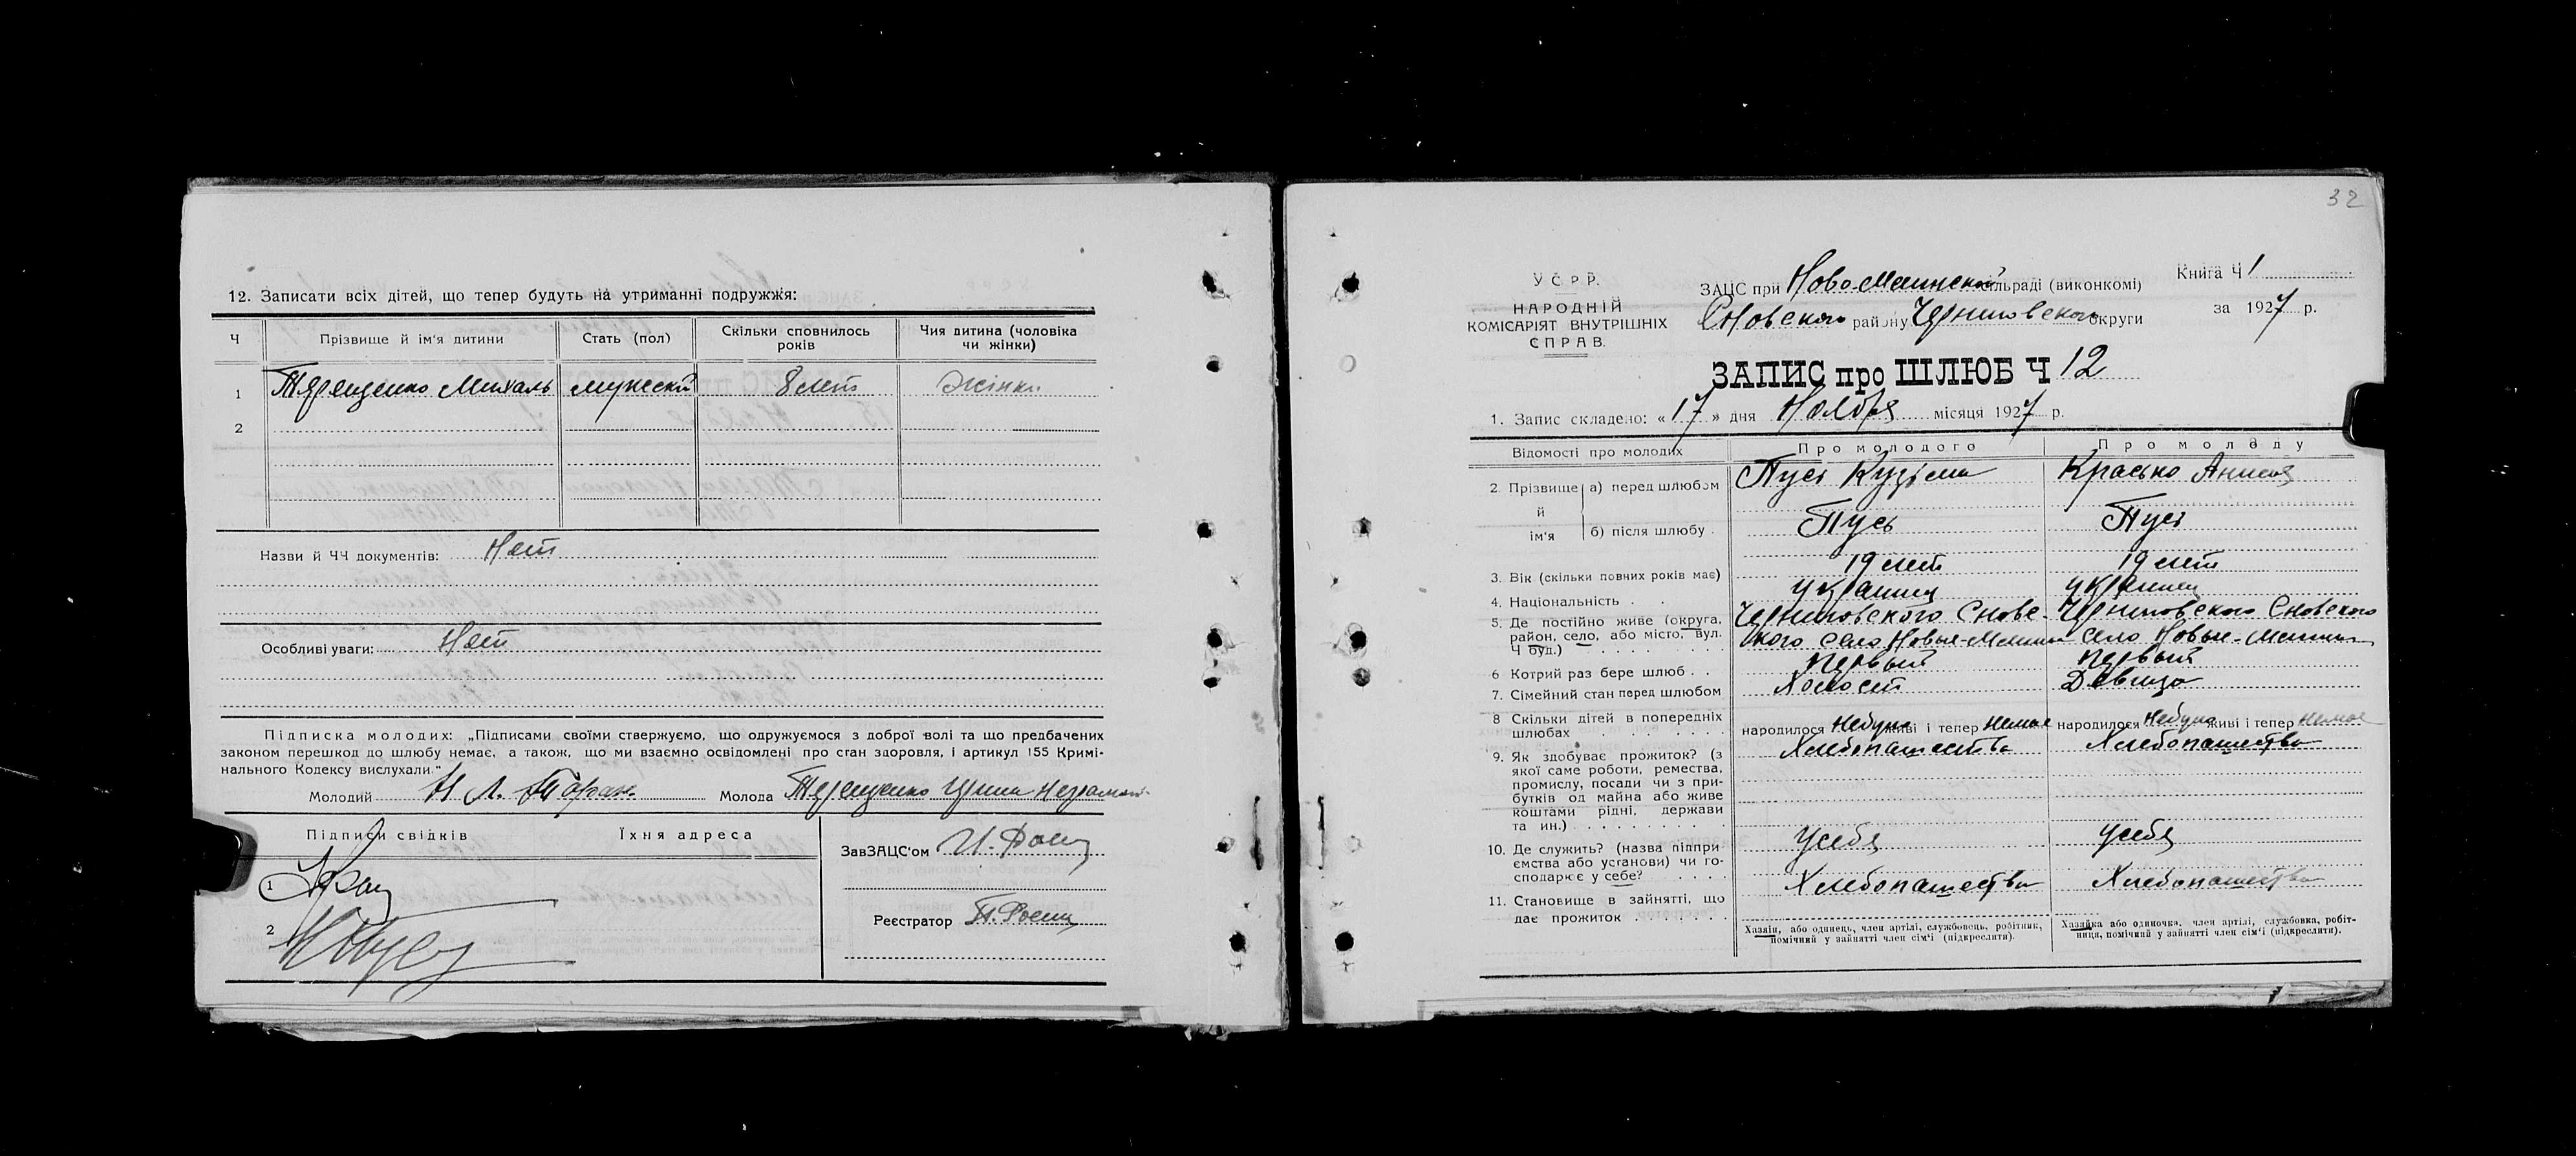 12. Записати всіх дітей, що тепер будуть на утриманні подружжя:
Ч Прізвище й ім'я дитини Стать (пол) Скільки сповнилось років Чия дитина (чоловіка чи жінки)
1 Терещенко Михаль мужеский 8 лет Жінки
2
Назви й ЧЧ документів: Нет
Особливі уваги: Нет
Підписка молодих: „Підписами своїми ствержуємо, що одружуємося з доброї волі та що предбачених
законом перешкод до шлюбу немає, а також, що ми взаємно освідомлені про стан здоровля, і артикул 155 Кримі-
нального Кодексу вислухали."
Молодий Молода Терещенко
Підписи свідків Їхня адреса
ЗавЗАЦС'ом
1
Реєстратор
2
32
У С Р Р.
НАРОДНІЙ
КОМІСАРІЯТ ВНУТРІШНІХ
СПРАВ.
ЗАЦС при Ново-Млинской сільраді (виконкомі)
Сновского району Черниговского округи
Книга Ч 1
за 1927 р.
ЗАПИС про ШЛЮБ Ч 12
1. Запис складено: «17» дня Ноября місяця 1927 р.
Відомості про молодих Про молодого Про молоду
2 Прізвище й ім'я а) перед шлюбом Пусь Кузьма Красько Анисия
б) після шлюбу Пусь Пусь
3. Вік (скільки повних років має) 19 лет 19 лет
4. Національність украинец украинец
5. Де постійно живе (округа, Черниговского Сновс- Черниговского Сновского
район, село, або місто, вул. кого село Новые-Млини село Новые-Млини
Ч буд.)
6 Котрий раз бере шлюб первый первый
7. Сімейний стан перед шлюбом Холост Девица
8 Скільки дітей в попередніх
шлюбах народилося Небуло живі і тепер Немає народилося Небуло живі і тепер Немає
9. Як здобуває прожиток? (з Хлебопашество Хлебопашество
якої саме роботи, ремества,
промислу, посади чи з при-
бутків од майна або живе
коштами рідні, держави
та ин.)
10. Де служить? (назва підпри- Усебя Усебя
ємства або установи) чи го-
сподарює у себе?
11. Становище в зайнятті, що Хлебопашество Хлебопашество
дає прожиток
Хазяїн, або одинець, член артілі, службовець, робітник,
помічний у зайнятті член сім'ї (підкреслити).
Хазяйка або одиночка, член артілі, службовка, робіт-
ниця, помічний у зайнятті член сім'ї (підкреслити).